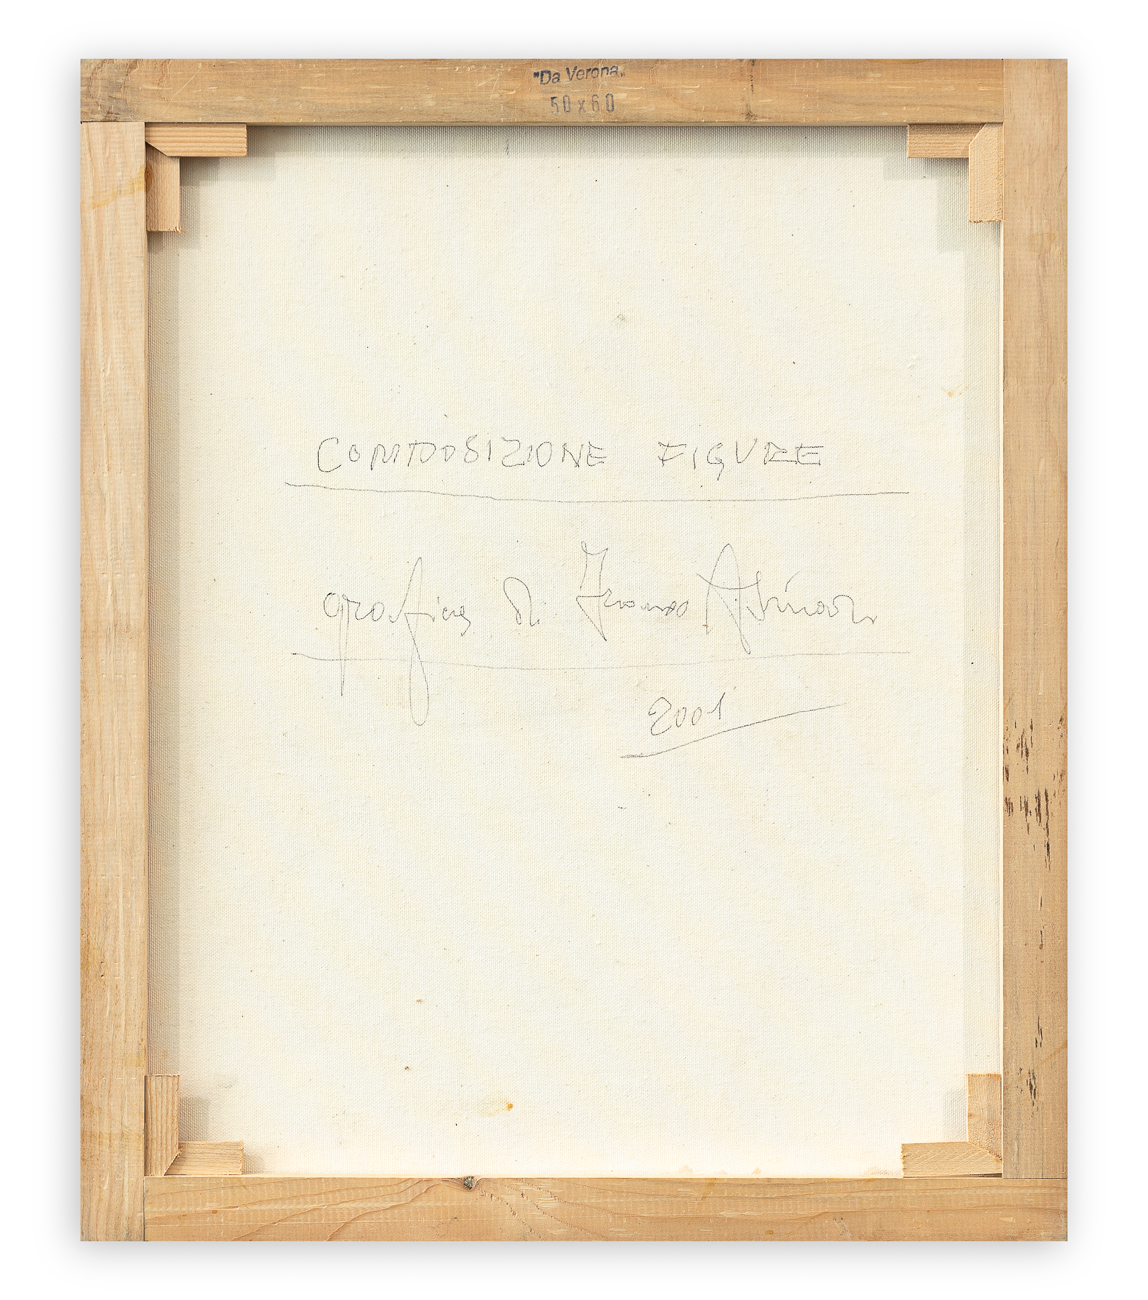 "Da Verona"
50x60
COMPOSIZIONE FIGURE
grafica di Franco
2001